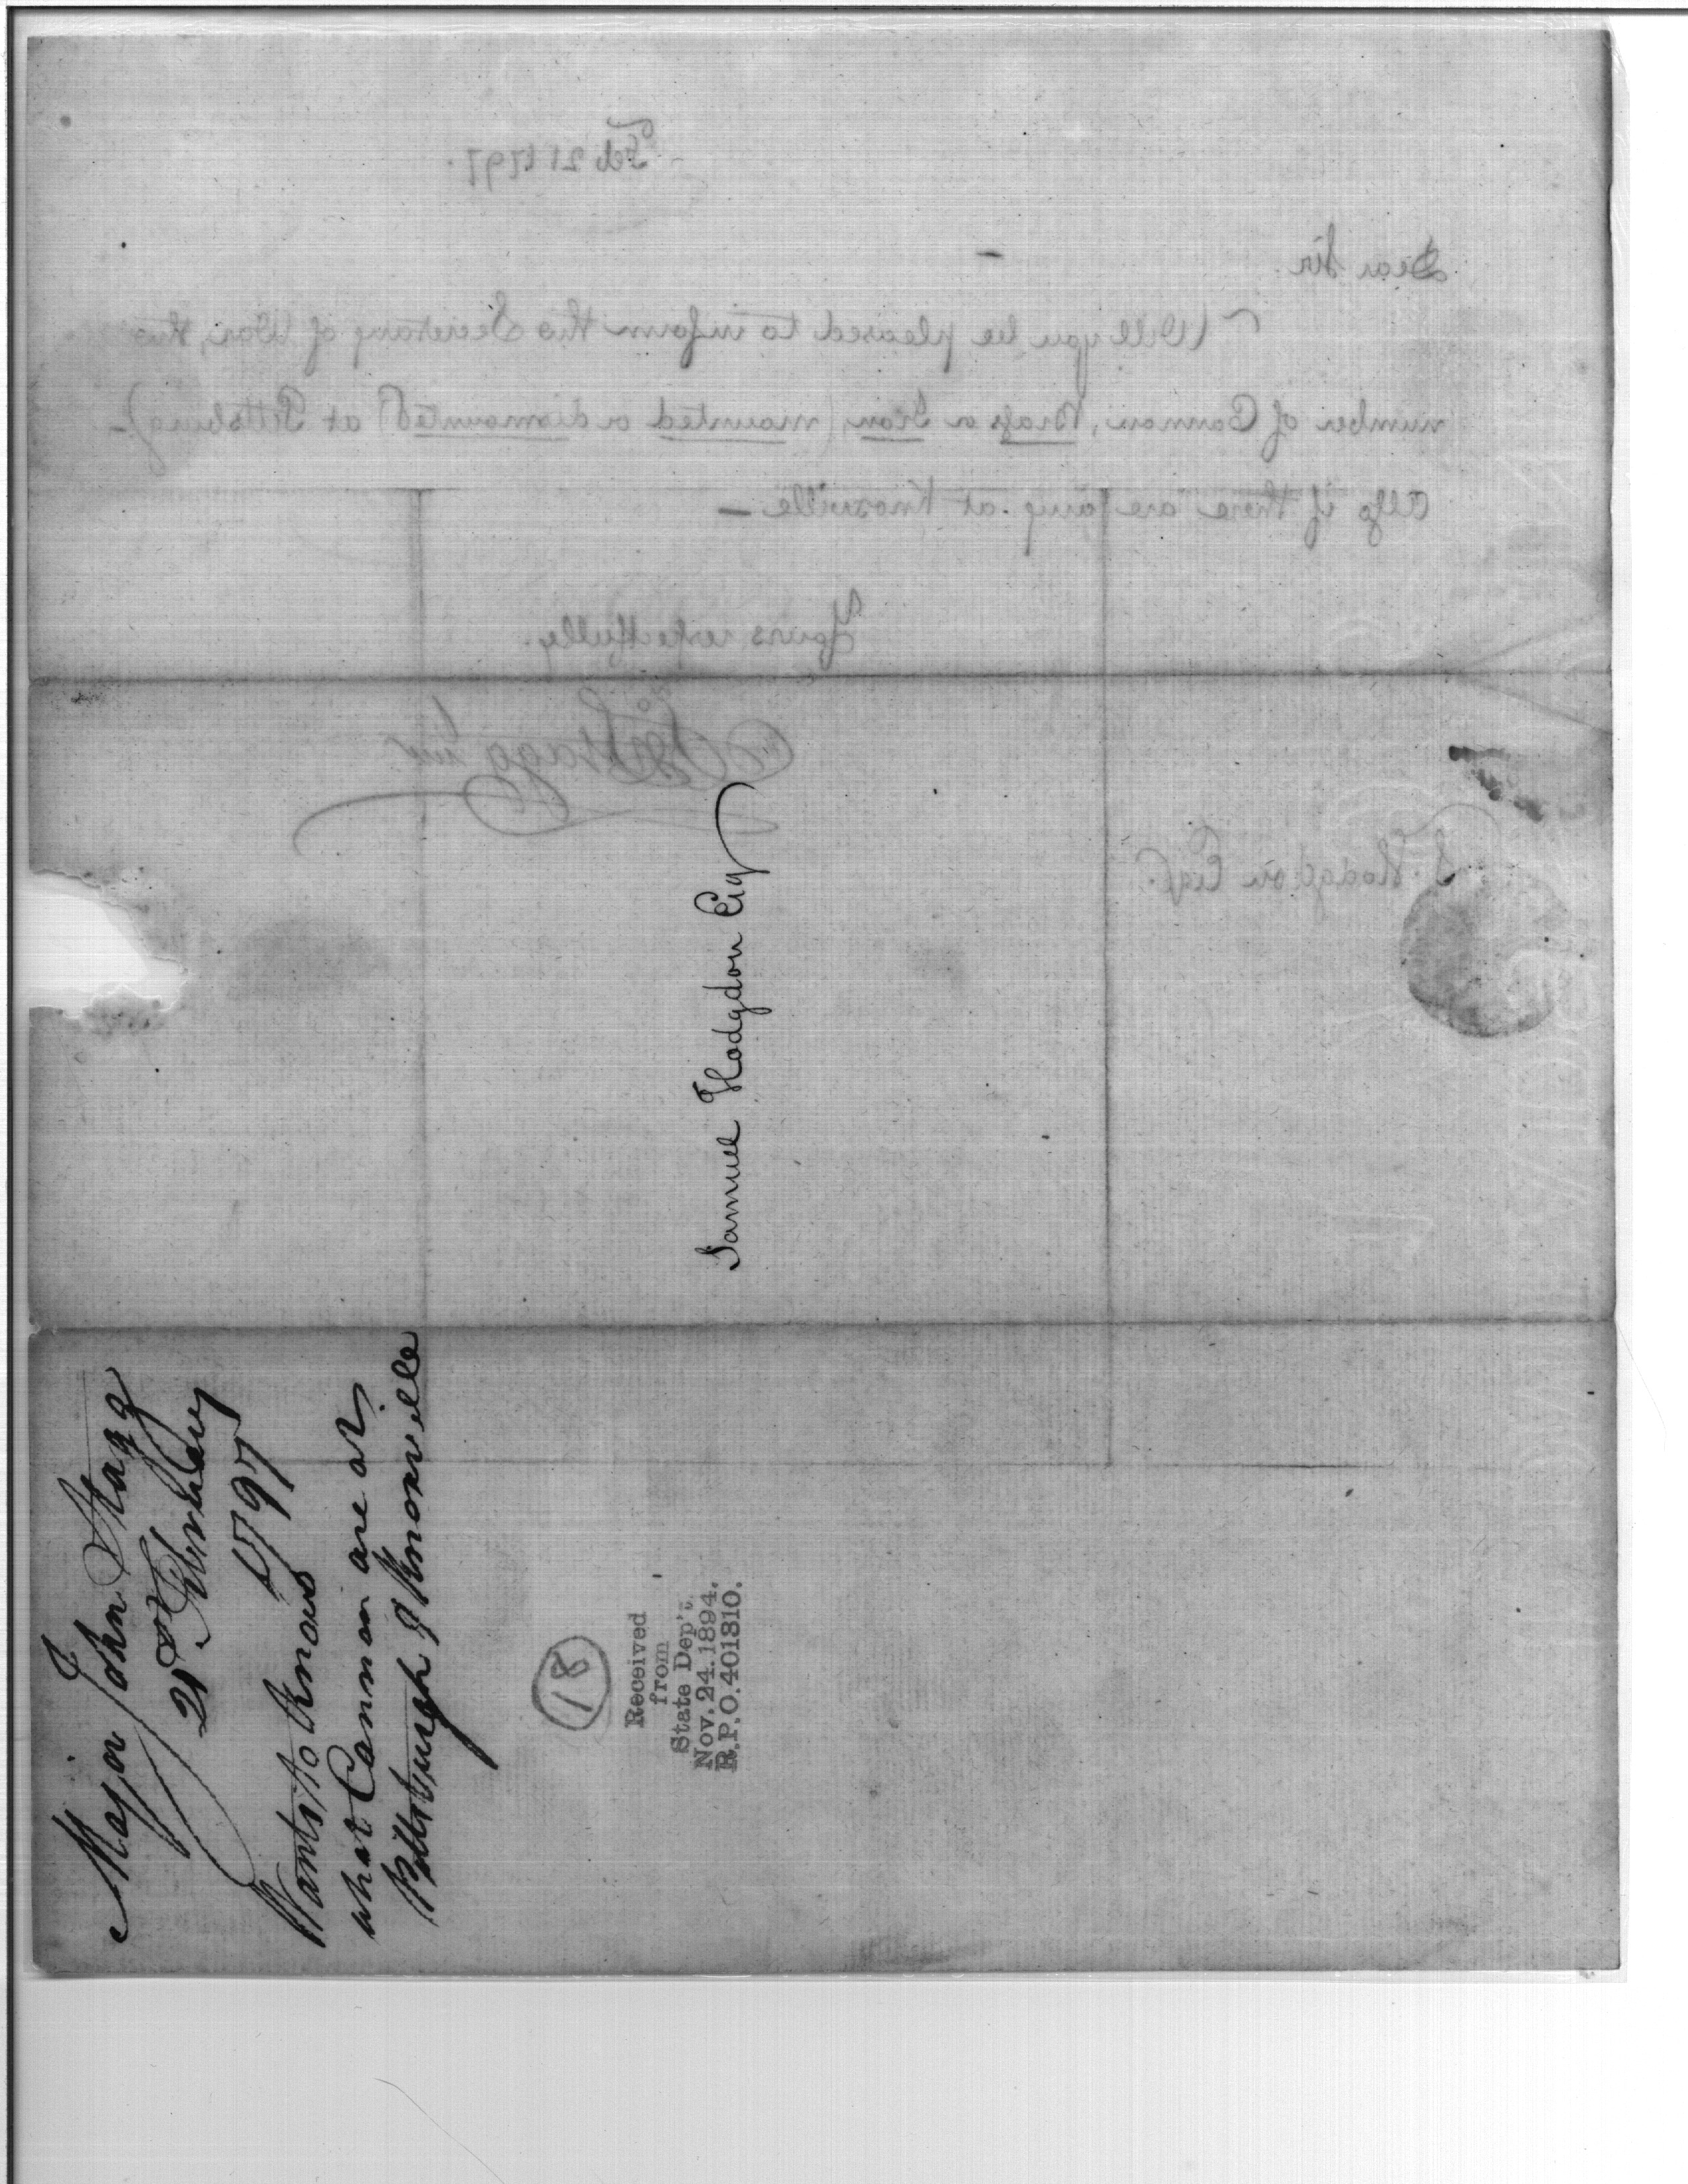 Feb 21 1797.
Dear Sir
Will you be pleased to inform the Secretary of War, the
number of Cannon, Brass or Iron, (mounted or dismounted) at Pittsburg) -
Also if there are any at Knoxville -
Yours respectfully.
Jno Stagg Junr
S. Hodgdon Esqr.
Samuel Hodgdon Esq
Major John Stagg
21st February
1797
Wants to know
what Cannon are at
Pittsburgh & Knoxville
18
Received
from
State Dep't.
Nov. 24. 1894.
R.P.O. 401310.